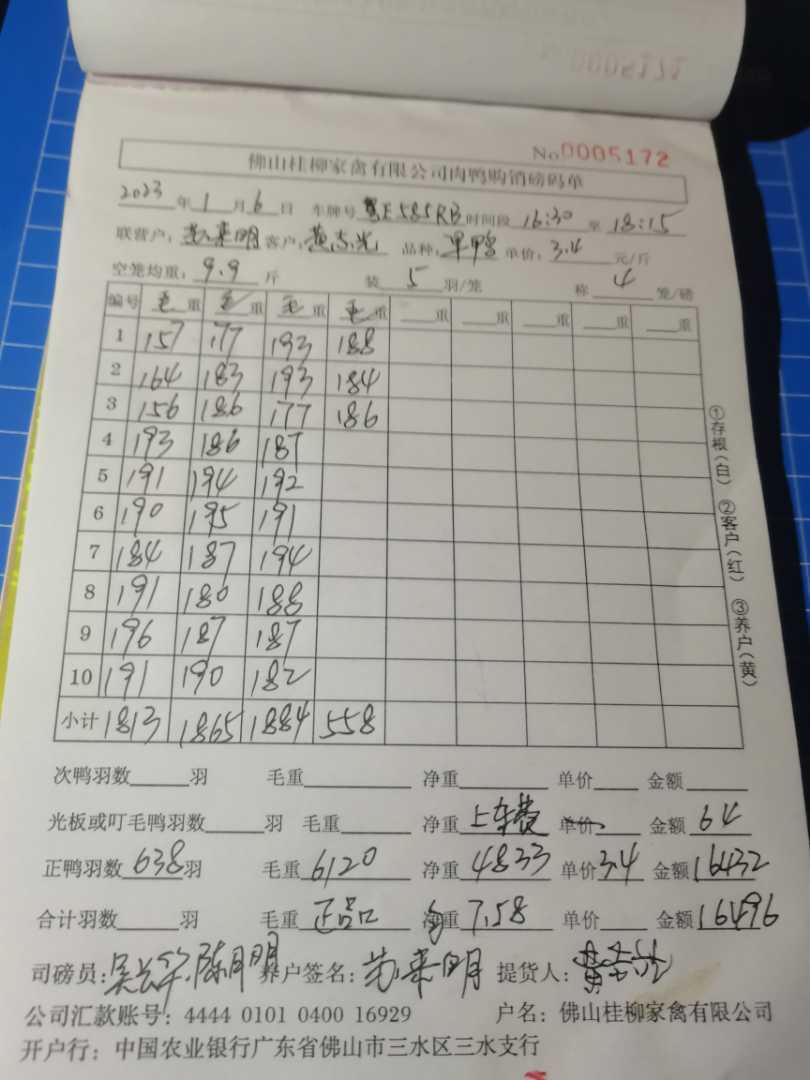 No 0005172
佛山桂柳家禽有限公司肉鸭购销磅码单
2023年1月6日 车牌号 粤E585RB 时间段 16:30 至 18:15
联营户: 来明 客户: 黄志光 品种: 单价: 3.4 元/斤
空笼均重: 9.9 斤 装 5 羽/笼 称 4 笼/磅
编号 毛重 毛重 毛重 毛重 重 重 重 重 重
1 157 177 193 188
2 164 183 193 184
3 156 186 177 186
4 193 186 187
5 191 194 192
6 190 195 191
7 184 187 194
8 191 180 188
9 196 187 187
10 191 190 182
小计 1813 1865 1884 558
次鸭羽数 羽 毛重 净重 单价 金额
光板或叮毛鸭羽数 羽 毛重 净重 上车费 单价 金额 64
正鸭羽数 638 羽 毛重 6120 净重 4833 单价 3.4 金额 16432
合计羽数 羽 毛重 正品 净重 7.58 单价 金额 16496
司磅员: 陈明 养户签名: 来明 提货人:
公司汇款账号: 4444 0101 0400 16929 户名: 佛山桂柳家禽有限公司
开户行: 中国农业银行广东省佛山市三水区三水支行
①存根(白) ②客户(红) ③养户(黄)